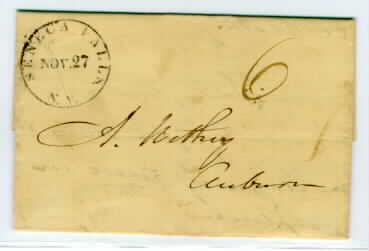 SENECA FALLS
NOV. 27
N.Y.
6
A.
Auburn